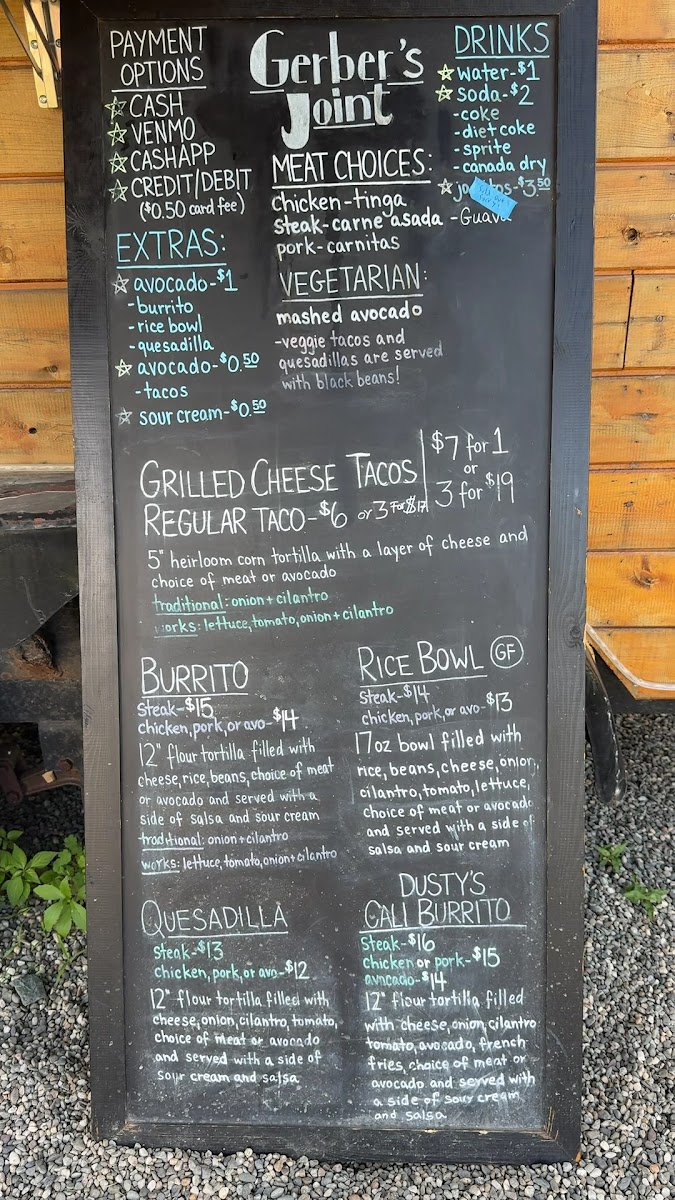 PAYMENT
OPTIONS
CASH
VENMO
CASHAPP
CREDIT/DEBIT
($0.50 card fee)
EXTRAS:
avocado-$1
-burrito
-rice bowl
-quesadilla
avocado-$0.50
-tacos
sour cream-$0.50
Gerber's
Joint
MEAT CHOICES:
chicken-tinga
steak-carne asada
pork-carnitas
VEGETARIAN:
mashed avocado
-veggie tacos and
quesadillas are served
with black beans!
DRINKS
water-$1
soda-$2
-coke
-diet coke
-sprite
-canada dry
-$3.50
GRILLED CHEESE TACOS
$7 for 1
or
3 for $19
REGULAR TACO-$6 or 3 for $17
5" heirloom corn tortilla with a layer of cheese and
choice of meat or avocado
traditional: onion + cilantro
works: lettuce, tomato, onion + cilantro
BURRITO
steak-$15
chicken, pork, or avo-$14
12" flour tortilla filled with
cheese, rice, beans, choice of meat
or avocado and served with a
side of salsa and sour cream
traditional: onion + cilantro
works: lettuce, tomato, onion + cilantro
RICE BOWL GF
steak-$14
chicken, pork, or avo-$13
17oz bowl filled with
rice, beans, cheese, onion,
cilantro, tomato, lettuce,
choice of meat or avocado
and served with a side of
salsa and sour cream
QUESADILLA
steak-$13
chicken, pork, or avo-$12
12" flour tortilla filled with
cheese, onion, cilantro, tomato,
choice of meat or avocado
and served with a side of
sour cream and salsa
DUSTY'S
CALI BURRITO
steak-$16
chicken or pork-$15
avocado-$14
12" flour tortilla filled
with cheese, onion, cilantro
tomato, avocado, french
fries, choice of meat or
avocado and served with
a side of sour cream
and salsa